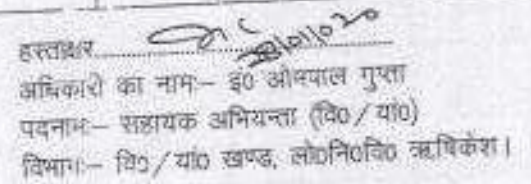 हस्ताक्षर....................
अधिकारी का नामः– इं0 ओमपाल गुप्ता
पदनामः– सहायक अभियन्ता (वि0/यां0)
विभागः– वि0/यां0 खण्ड, लो0नि0वि0 ऋषिकेश।